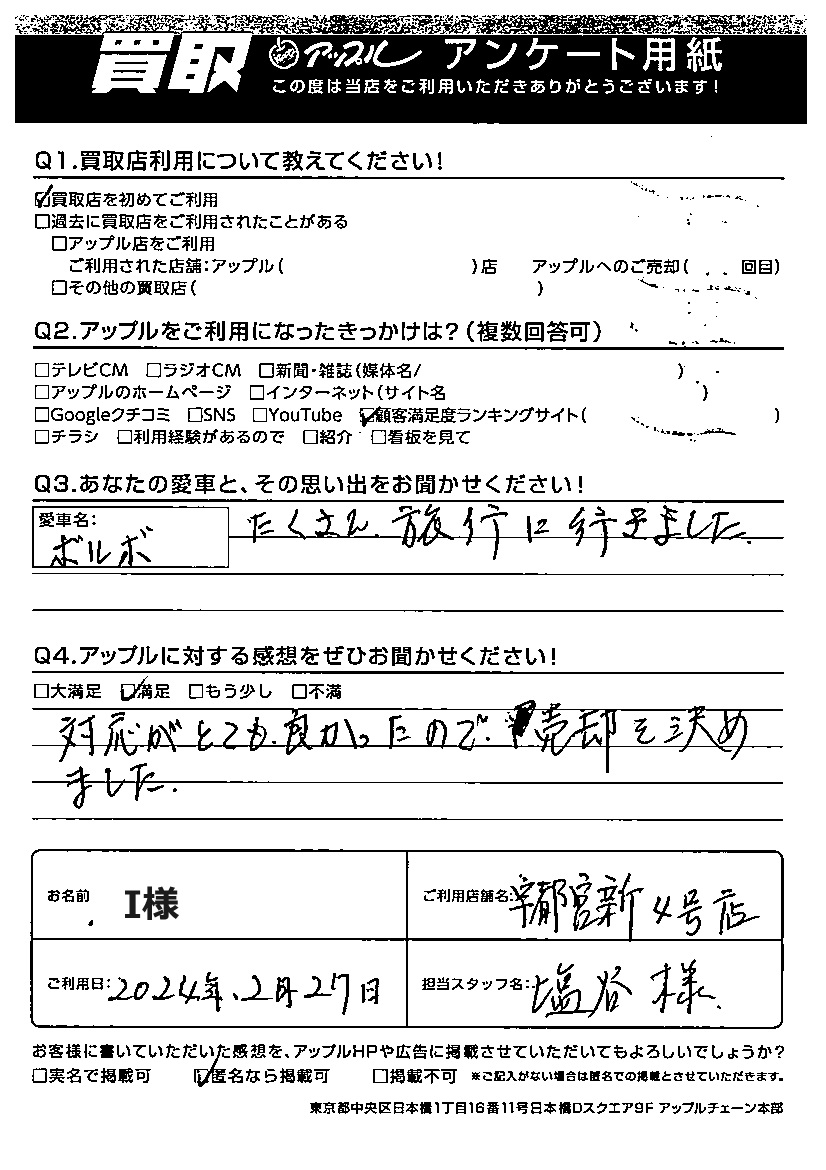 買取 アップル アンケート用紙
この度は当店をご利用いただきありがとうございます!
Q1.買取店利用について教えてください!
☑買取店を初めてご利用
□過去に買取店をご利用されたことがある
□アップル店をご利用
ご利用された店舗:アップル( )店 アップルへのご売却( 回目)
□その他の買取店( )
Q2.アップルをご利用になったきっかけは?(複数回答可)
□テレビCM □ラジオCM □新聞・雑誌(媒体名/ )
□アップルのホームページ □インターネット(サイト名 )
□Googleクチコミ □SNS □YouTube ☑顧客満足度ランキングサイト( )
□チラシ □利用経験があるので □紹介 □看板を見て
Q3.あなたの愛車と、その思い出をお聞かせください!
愛車名:
ボルボ
たくさん、旅行に行きました。
Q4.アップルに対する感想をぜひお聞かせください!
□大満足 ☑満足 □もう少し □不満
対応がとても良かったので、売却を決め
ました。
お名前 I様
ご利用店舗名:宇都宮新4号店
ご利用日:2024年、2月27日
担当スタッフ名:塩谷様
お客様に書いていただいた感想を、アップルHPや広告に掲載させていただいてもよろしいでしょうか?
□実名で掲載可 ☑匿名なら掲載可 □掲載不可 ※ご記入がない場合は匿名での掲載とさせていただきます。
東京都中央区日本橋1丁目16番11号日本橋Dスクエア9F アップルチェーン本部